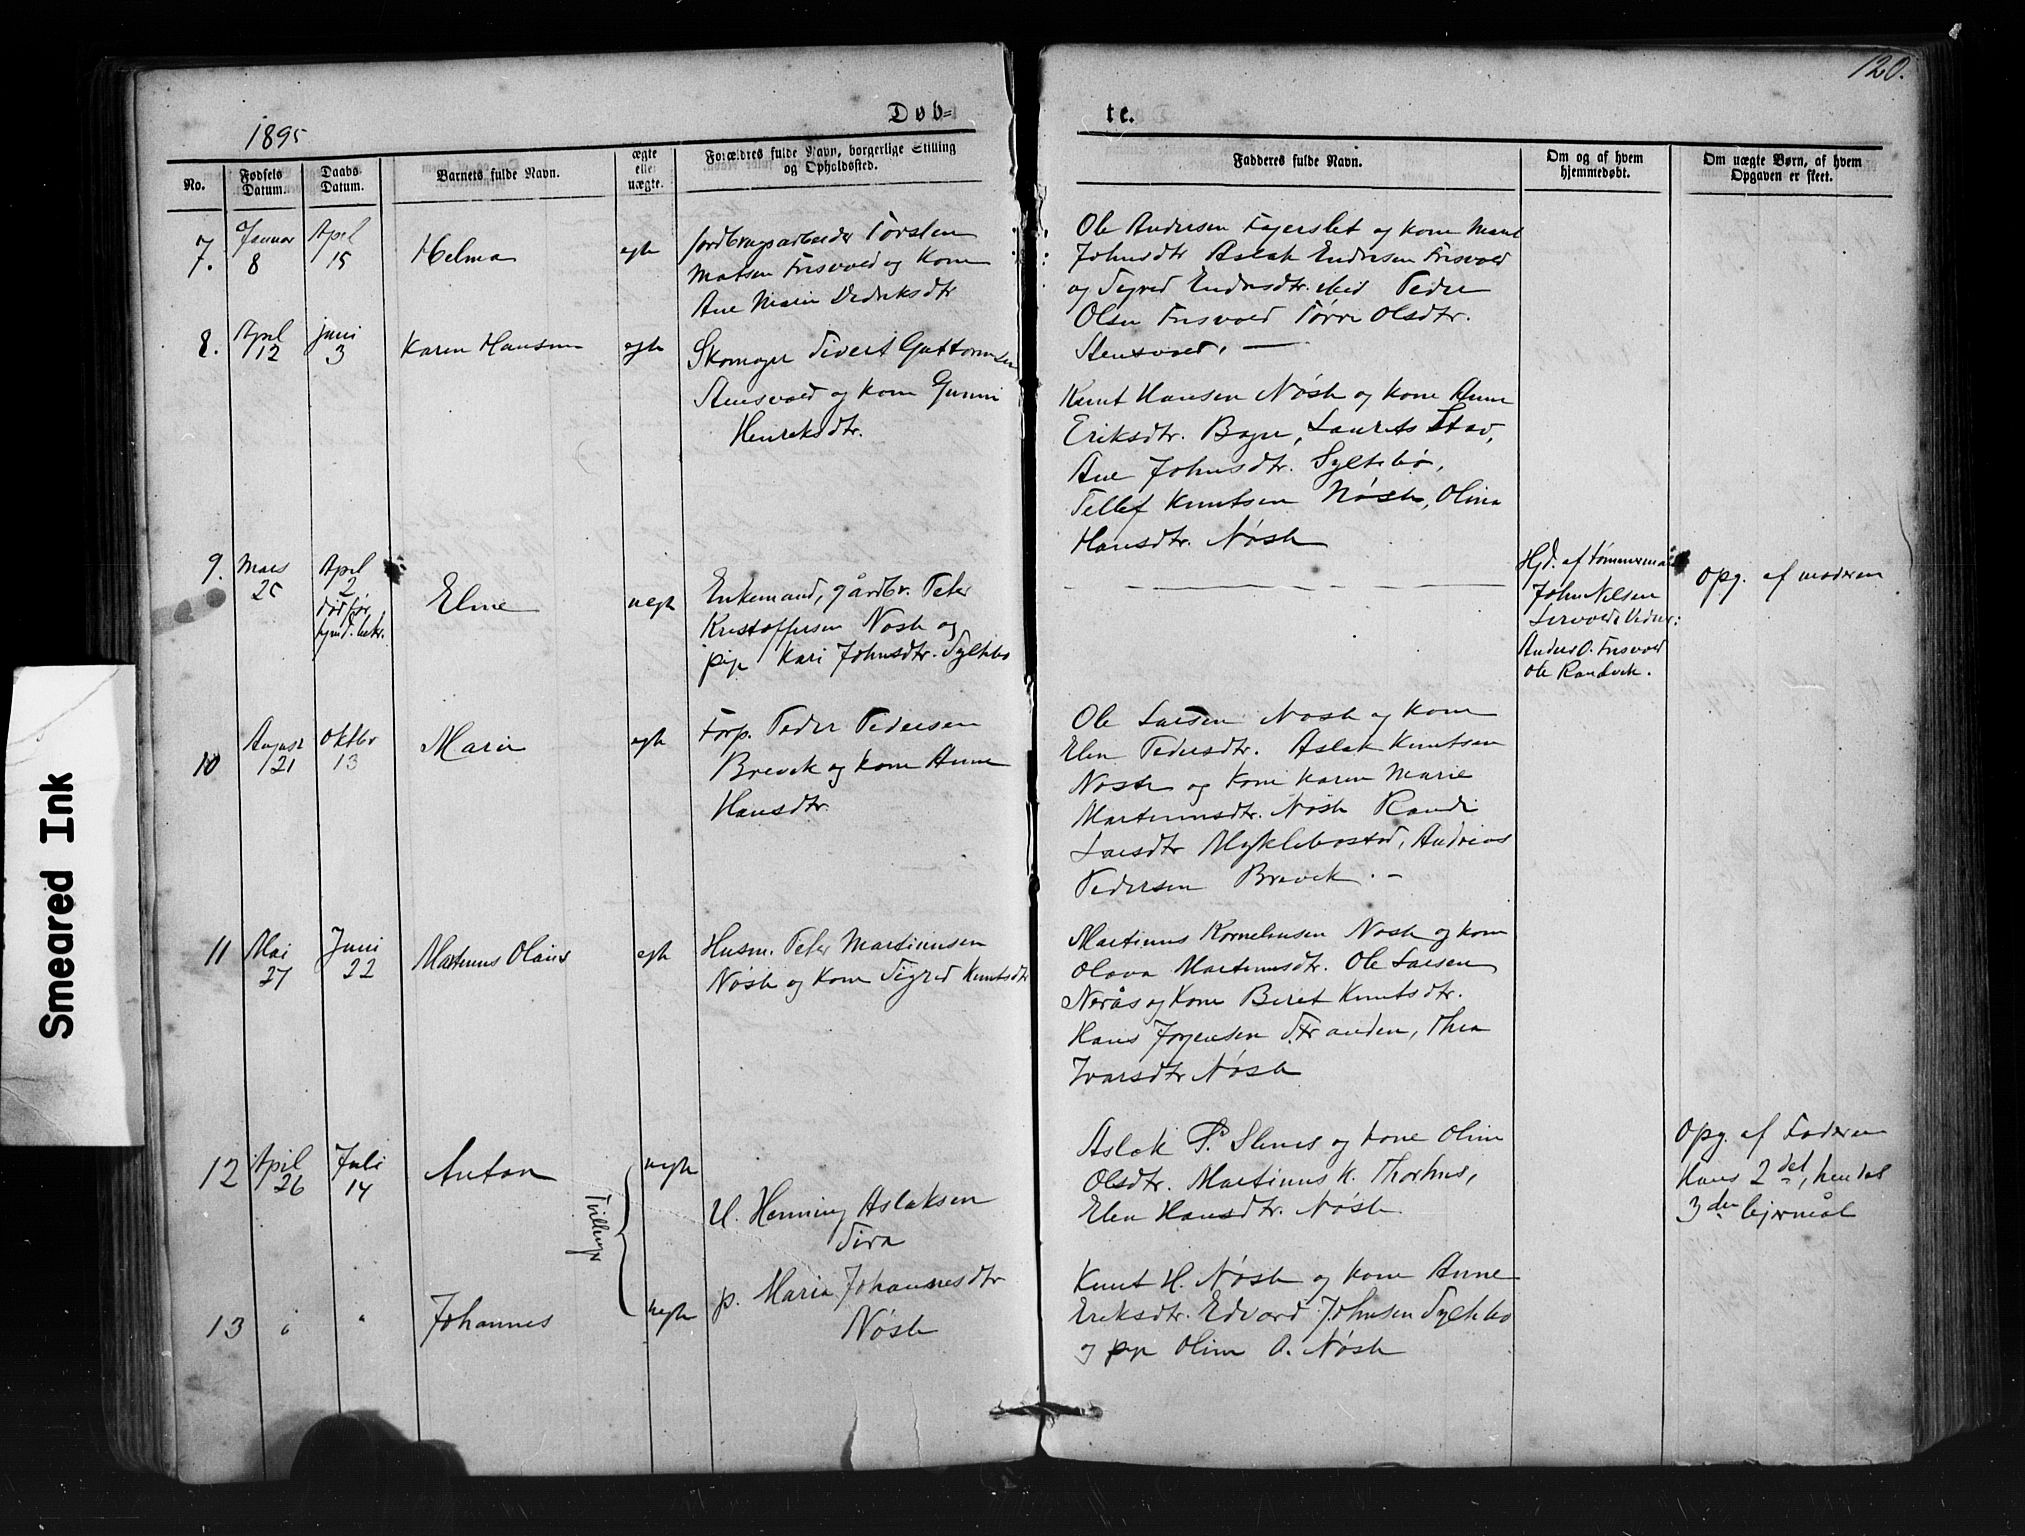 120.
1895
Døb=
te.
No.
Fødsels Datum.
Daabs Datum.
Barnets fulde Navn.
ægte eller uægte.
Forældres fulde Navn, borgerlige Stilling og Opholdssted.
Fadderes fulde Navn.
Om og af hvem hjemmedøbt.
Om uægte Børn, af hvem Opgaven er skeet.
7.
Januar 8
April 15
Helma
egte
Jordbrugsarbeider Torsten
Matsen Frisvold og Kone
Ane Marie Dedriksdtr
Ole Andersen Fagerslet og Kone Marit
Johnsdtr Aslak Endresen Frisvold
og Sigrid Endresdtr. ibid Peder
Olsen Frisvold Törri Olsdtr.
Stensvold. —
8.
April 12
Juni 3
Karen Hansine
egte
Skomager Sivert Guttormsen
Stensvold og Kone Gunni
Henriksdtr.
Knut Hansen Nöste og Kone Anne
Eriksdtr. Bogn, Laurits Stav,
Ane Johnsdtr. Syltebö,
Tellef Knutsen Nöste, Olina
Hansdtr. Nöste
9.
Mars 25
April 2
död för
hjmd. bekr.
Eline
uegte
Enkemand, gårdbr. Peter
Kristoffersen Nöste og
pige Kari Johnsdtr. Syltebö
Hjd. af tømmermand
John Nilsen
Lervold Vidner:
Anders O. Frisvold
Ole Randvik.
Opg. af moderen
10
August 21
Oktbr 13
Marie
egte
Forp. Peder Pedersen
Brevik og Kone Anne
Hansdtr.
Ole Larsen Nöste og Kone
Elen Pedersdtr. Aslak Knutsen
Nöste og Kone Karen Marie
Martinusdtr. Nöste Randi
Larsdtr Myklebostad, Andreas
Pedersen Brevik. —
11
Mai 27
Juni 22
Martinus Olaus
egte
Husm. Peter Martinusen
Nöste og Kone Sigrid Knutsdtr
Martinus Korneliusen Nöste og Kone
Olava Martinusdtr. Ole Larsen
Nerås og Kone Beret Knutsdtr.
Hans Jörgensen Stranden, Thea
Ivarsdtr Nöste
12
April 26
Juli 14
Anton
Tvillinger
uegte
U. Henning Aslaksen
Sira
Aslak P. Slenes og Kone Olina
Olsdtr. Martinus K. Thorhus,
Elen Hansdtr. Nöste.
Opg. af Faderen
Hans 2det, hendes
3die leiermål
13
"
"
Johannes
uegte
p. Maria Johannesdtr
Nöste
Knut H. Nöste og Kone Anne
Eriksdtr. Edvard Johnsen Syltebö
og pige Olina O. Nöste
Smeared Ink